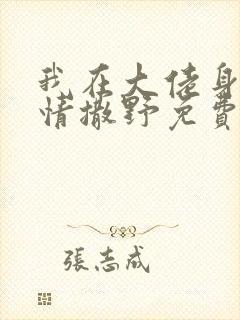 我在大佬身
情撒野免費
張志成